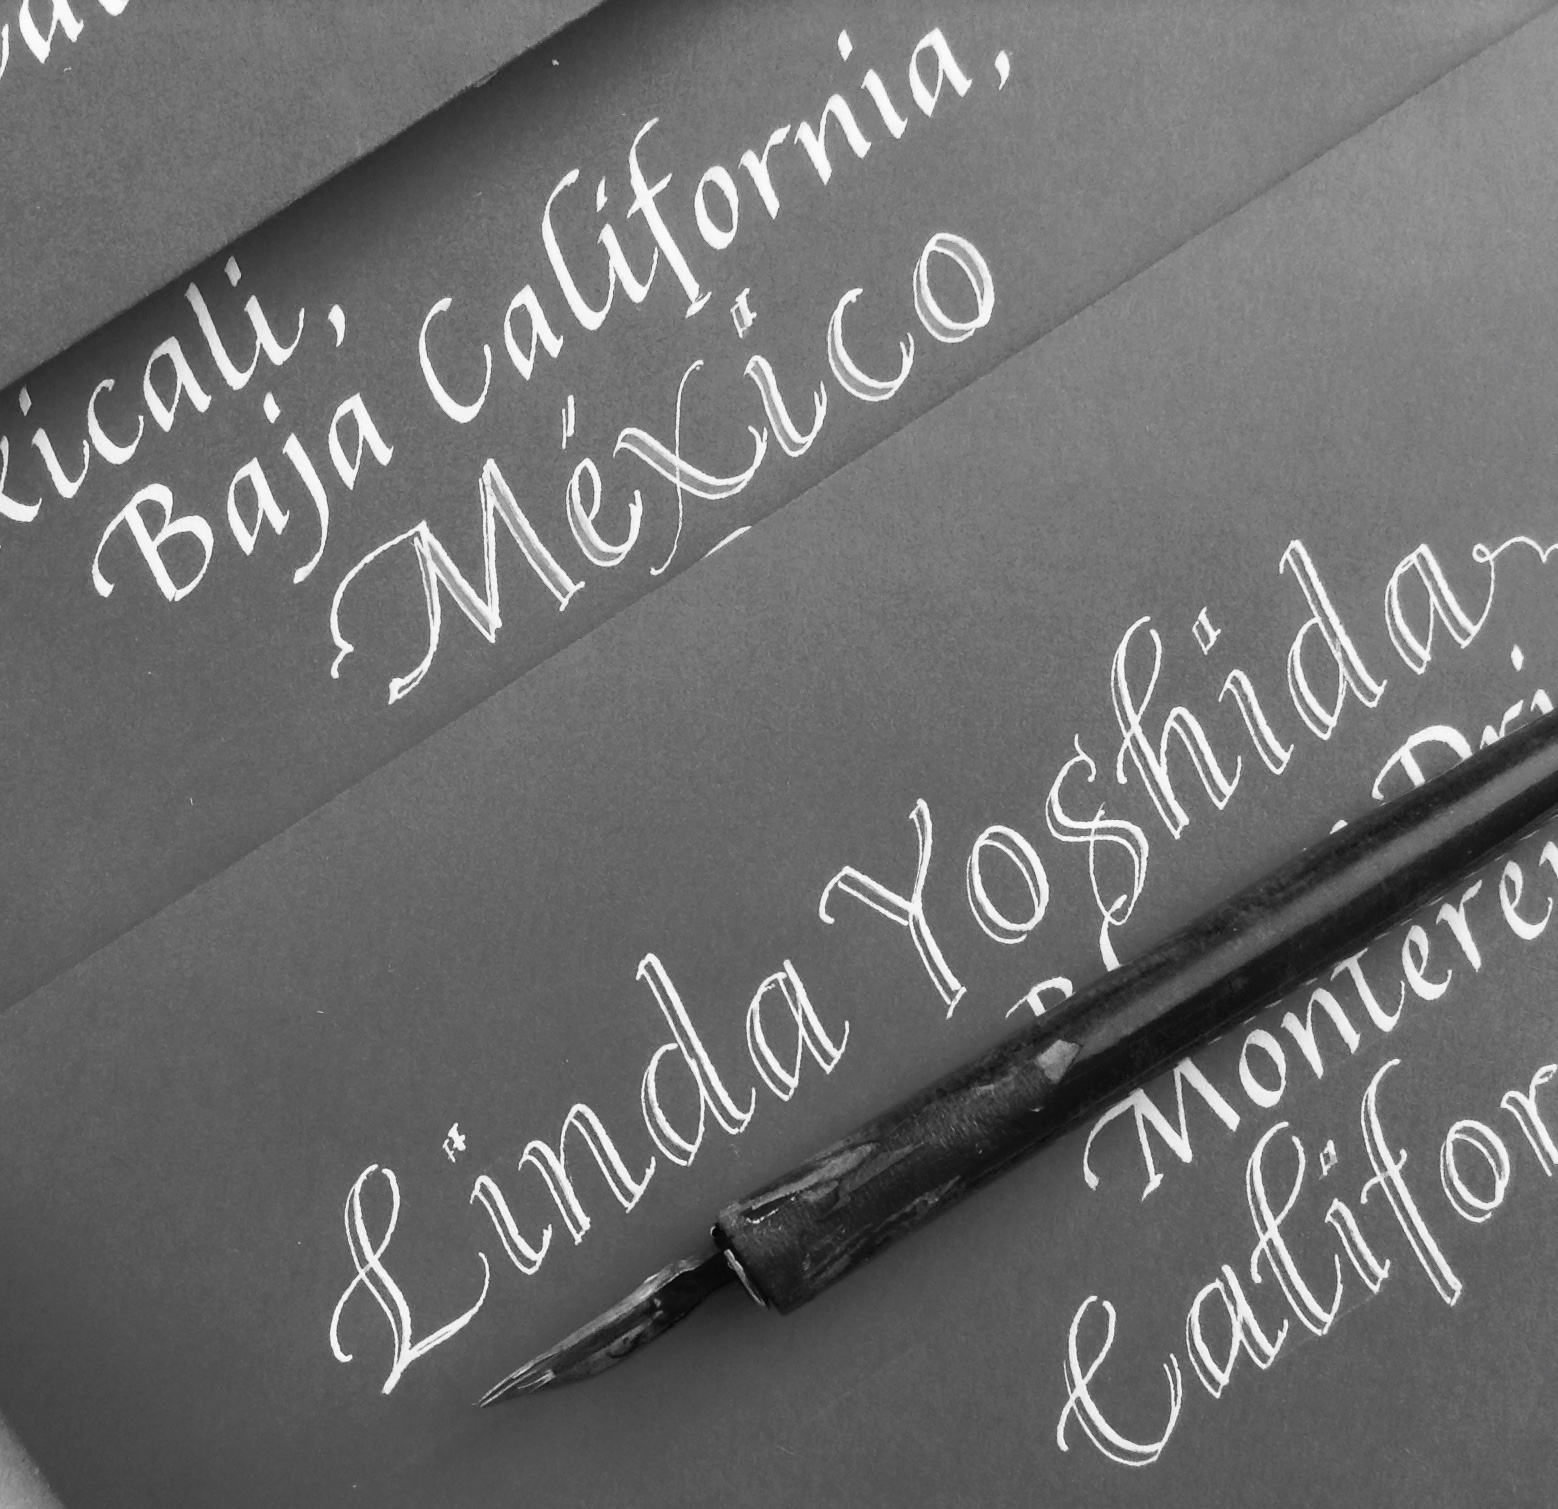 xicali,
Baja California,
México
Linda Yoshida
Dri
Monterey
Califor